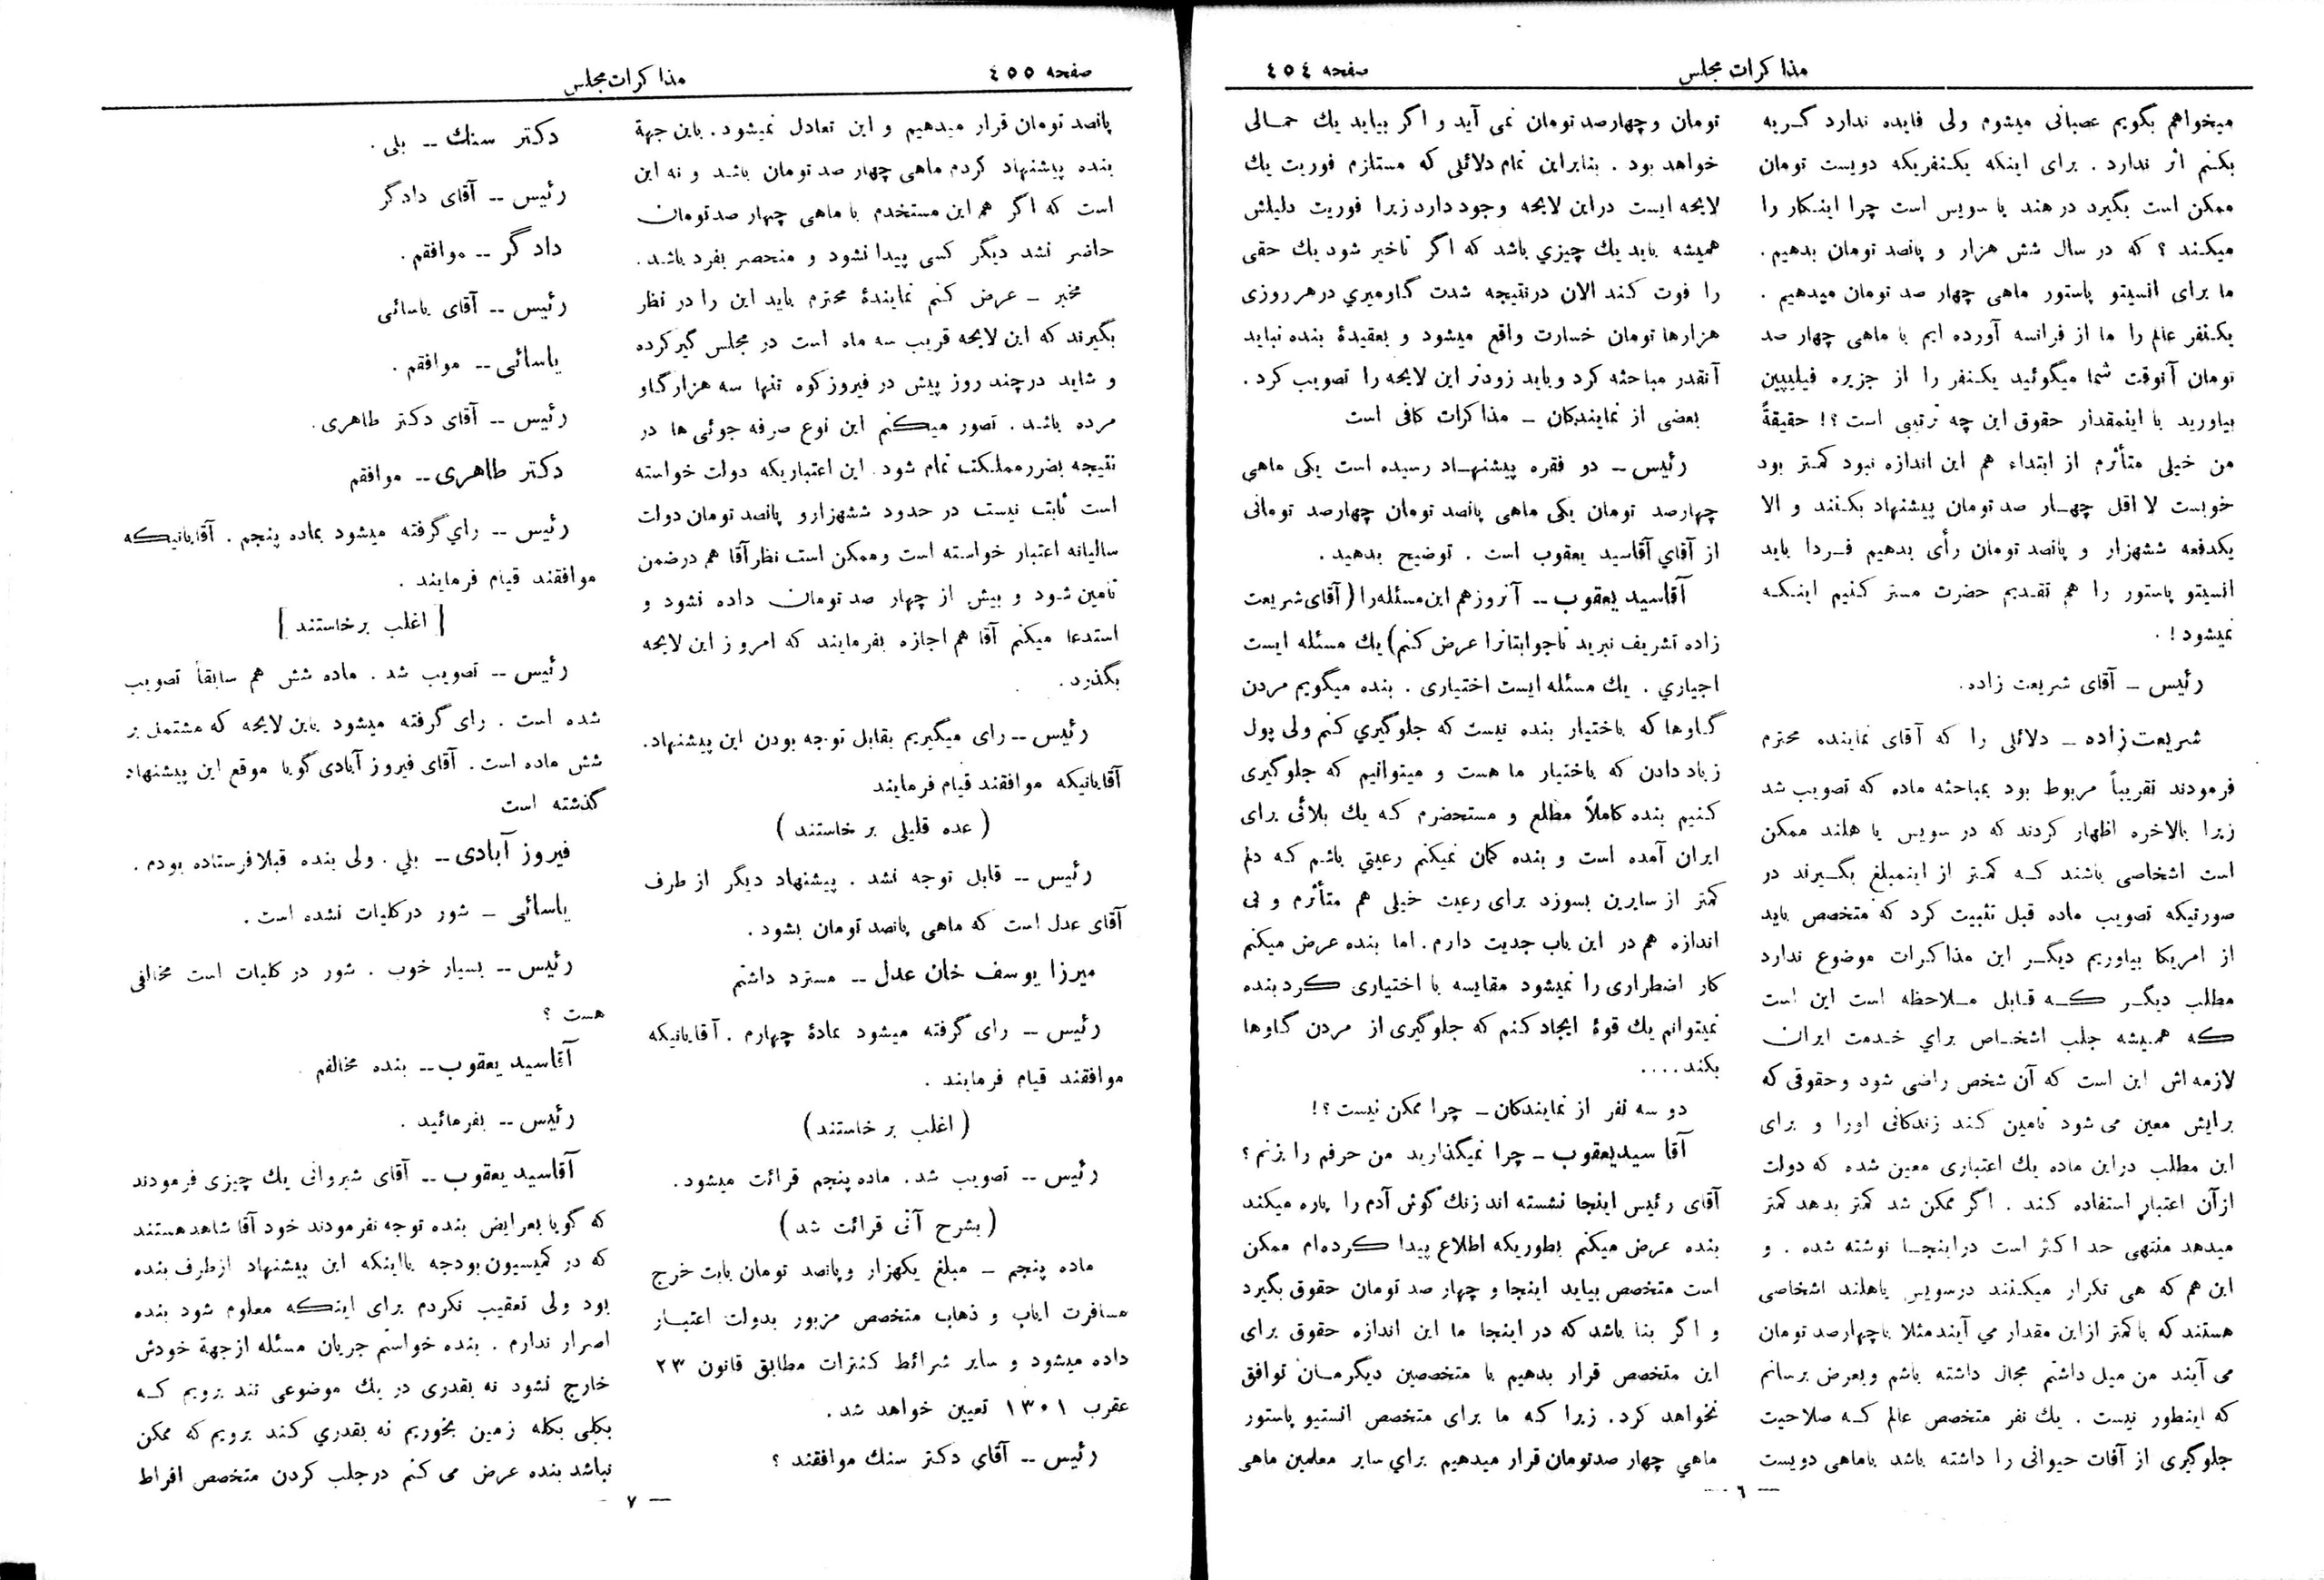 مذاکرات مجلس
صفحه ٤٥٤
میخواهم بگویم عصبانی میشوم ولی فایده ندارد گریه
بکنم اثر ندارد . برای اینکه یکنفریکه دویست تومان
ممکن است بگیرد در هند یا سویس است چرا اینکار را
میکند ؟ که در سال شش هزار و پانصد تومان بدهیم .
ما برای انسیتو پاستور ماهی چهار صد تومان میدهیم .
یکنفر عالم را ما از فرانسه آورده ایم با ماهی چهار صد
تومان آنوقت شما میگوئید یکنفر را از جزیره فیلیپین
بیاورید با اینمقدار حقوق این چه ترتیبی است ؟! حقیقةً
من خیلی متأثرم از ابتداء هم این اندازه نبود کمتر بود
خوبست لا اقل چهار صد تومان پیشنهاد بکنند و الا
یکدفعه ششهزار و پانصد تومان رأی بدهیم فردا باید
انسیتو پاستور را هم تقدیم حضرت مستر کنیم اینکه
نمیشود ! .
رئیس – آقای شریعت زاده .
شریعت زاده – دلائلی را که آقای نماینده محترم
فرمودند تقریباً مربوط بود بمباحثه ماده که تصویب شد
زیرا بالاخره اظهار کردند که در سویس یا هلند ممکن
است اشخاصی باشند که کمتر از اینمبلغ بگیرند در
صورتیکه تصویب ماده قبل تثبیت کرد که متخصص باید
از امریکا بیاوریم دیگر این مذاکرات موضوع ندارد
مطلب دیگر که قابل ملاحظه است این است
که همیشه جلب اشخاص براي خدمت ایران
لازمه اش این است که آن شخص راضی شود و حقوقی که
برایش معین می شود تامین کند زندگانی اورا و برای
این مطلب دراین ماده یك اعتباری معین شده که دولت
ازآن اعتبار استفاده کند . اگر ممکن شد کمتر بدهد کمتر
میدهد منتهی حد اکثر است دراینجا نوشته شده . و
این هم که هی تکرار میکنند درسویس یاهلند اشخاصی
هستند که با کمتر ازاین مقدار مي آیند مثلا با چهارصد تومان
می آیند من میل داشتم مجال داشته باشم و بعرض برسانم
که اینطور نیست . یك نفر متخصص عالم که صلاحیت
جلوگیری از آفات حیوانی را داشته باشد با ماهی دویست
تومان و چهارصد تومان نمی آید و اگر بیاید یك حمالی
خواهد بود . بنابراین تمام دلائلی که مستلزم فوریت یك
لایحه ایست دراین لایحه وجود دارد زیرا فوریت دلیلش
همیشه باید یك چیزي باشد که اگر تاخیر شود یك حقی
را فوت کند الان درنتیجه شدت گاومیري درهر روزی
هزارها تومان خسارت واقع میشود و بعقیدهٔ بنده نباید
آنقدر مباحثه کرد و باید زودتر این لایحه را تصویب کرد .
بعضی از نمایندگان – مذاکرات کافی است
رئیس – دو فقره پیشنهاد رسیده است یکی ماهی
چهارصد تومان یکی ماهی پانصد تومان چهارصد تومانی
از آقاي آقاسید یعقوب است . توضیح بدهید .
آقاسید یعقوب – آنروز هم این مسئله را (آقای شریعت
زاده تشریف نبرید تا جوابتانرا عرض کنم) یك مسئله ایست
اجباري . یك مسئله ایست اختیاری . بنده میگویم مردن
گاوها که باختیار بنده نیست که جلوگیري کنم ولی پول
زیاد دادن که باختیار ما هست و میتوانیم که جلوگیری
کنیم بنده کاملاً مطلع و مستحضرم که یك بلائی برای
ایران آمده است و بنده گمان نمیکنم رعیتي باشم که دلم
کمتر از سایرین بسوزد برای رعیت خیلی هم متأثرم و بی
اندازه هم در این باب جدیت دارم . اما بنده عرض میکنم
کار اضطراری را نمیشود مقایسه با اختیاری کرد بنده
نمیتوانم یك قوهٔ ایجاد کنم که جلوگیری از مردن گاوها
بکند ....
دو سه نفر از نمایندگان – چرا ممکن نیست ؟!
آقا سید یعقوب – چرا نمیگذارید من حرفم را بزنم ؟
آقای رئیس اینجا نشسته اند زنك گوش آدم را پاره میکند
بنده عرض میکنم بطوریکه اطلاع پیدا کرده ام ممکن
است متخصص بیاید اینجا و چهار صد تومان حقوق بگیرد
و اگر بنا باشد که در اینجا ما این اندازه حقوق برای
این متخصص قرار بدهیم با متخصصین دیگرمان توافق
نخواهد کرد . زیرا که ما برای متخصص انستیو پاستور
ماهي چهار صدتومان قرار میدهیم براي سایر معلمین ماهی
— ٦ —
صفحه ٤٥٥
مذاکرات مجلس
پانصد تومان قرار میدهیم و این تعادل نمیشود . باین جهة
بنده پیشنهاد کردم ماهی چهار صد تومان باشد و نه این
است که اگر هم این مستخدم با ماهی چهار صد تومان
حاضر نشد دیگر کسی پیدا نشود و منحصر بفرد باشد .
مخبر – عرض کنم نمایندهٔ محترم باید این را در نظر
بگیرند که این لایحه قریب سه ماه است در مجلس گیر کرده
و شاید درچند روز پیش در فیروزکوه تنها سه هزار گاو
مرده باشد . تصور میکنم این نوع صرفه جوئی ها در
نتیجه بضرر مملکت تمام شود . این اعتباریکه دولت خواسته
است ثابت نیست در حدود ششهزارو پانصد تومان دولت
سالیانه اعتبار خواسته است و ممکن است نظر آقا هم درضمن
تامین شود و بیش از چهار صد تومان داده نشود و
استدعا میکنم آقا هم اجازه بفرمایند که امروز این لایحه
بگذرد .
رئیس – رای میگیریم بقابل توجه بودن این پیشنهاد .
آقایانیکه موافقند قیام فرمایند
( عده قلیلی بر خاستند )
رئیس – قابل توجه نشد . پیشنهاد دیگر از طرف
آقای عدل است که ماهی پانصد تومان بشود .
میرزا یوسف خان عدل – مسترد داشتم
رئیس – رای گرفته میشود بمادهٔ چهارم . آقایانیکه
موافقند قیام فرمایند .
( اغلب بر خاستند )
رئیس – تصویب شد . ماده پنجم قرائت میشود .
( بشرح آتی قرائت شد )
ماده پنجم – مبلغ یکهزار و پانصد تومان بابت خرج
مسافرت ایاب و ذهاب متخصص مزبور بدولت اعتبار
داده میشود و سایر شرائط کنترات مطابق قانون ٢٣
عقرب ١٣٠١ تعیین خواهد شد .
رئیس – آقاي دکتر سنك موافقند ؟
دکتر سنك – بلی .
رئیس – آقای دادگر
دادگر – موافقم .
رئیس – آقای یاسائی
یاسائی – موافقم .
رئیس – آقای دکتر طاهری .
دکتر طاهری – موافقم
رئیس – راي گرفته میشود بماده پنجم . آقایانیکه
موافقند قیام فرمایند .
[ اغلب برخاستند ]
رئیس – تصویب شد . ماده شش هم سابقاً تصویب
شده است . رای گرفته میشود باین لایحه که مشتمل بر
شش ماده است . آقای فیروز آبادی گویا موقع این پیشنهاد
گذشته است
فیروز آبادی – بلي . ولی بنده قبلا فرستاده بودم .
یاسائی – شور درکلیات نشده است .
رئیس – بسیار خوب . شور در کلیات است مخالفی
هست ؟
آقاسید یعقوب – بنده مخالفم .
رئیس – بفرمائید .
آقاسید یعقوب – آقای شیروانی یك چیزی فرمودند
که گویا بعرایض بنده توجه نفرمودند خود آقا شاهد هستند
که در کمیسیون بودجه بااینکه این پیشنهاد ازطرف بنده
بود ولی تعقیب نکردم برای اینکه معلوم شود بنده
اصرار ندارم . بنده خواستم جریان مسئله ازجهة خودش
خارج نشود نه بقدری در یك موضوعی تند برویم که
بکلی بکله زمین بخوریم نه بقدري کند برویم که ممکن
نباشد بنده عرض می کنم درجلب کردن متخصص افراط
— ٧ —